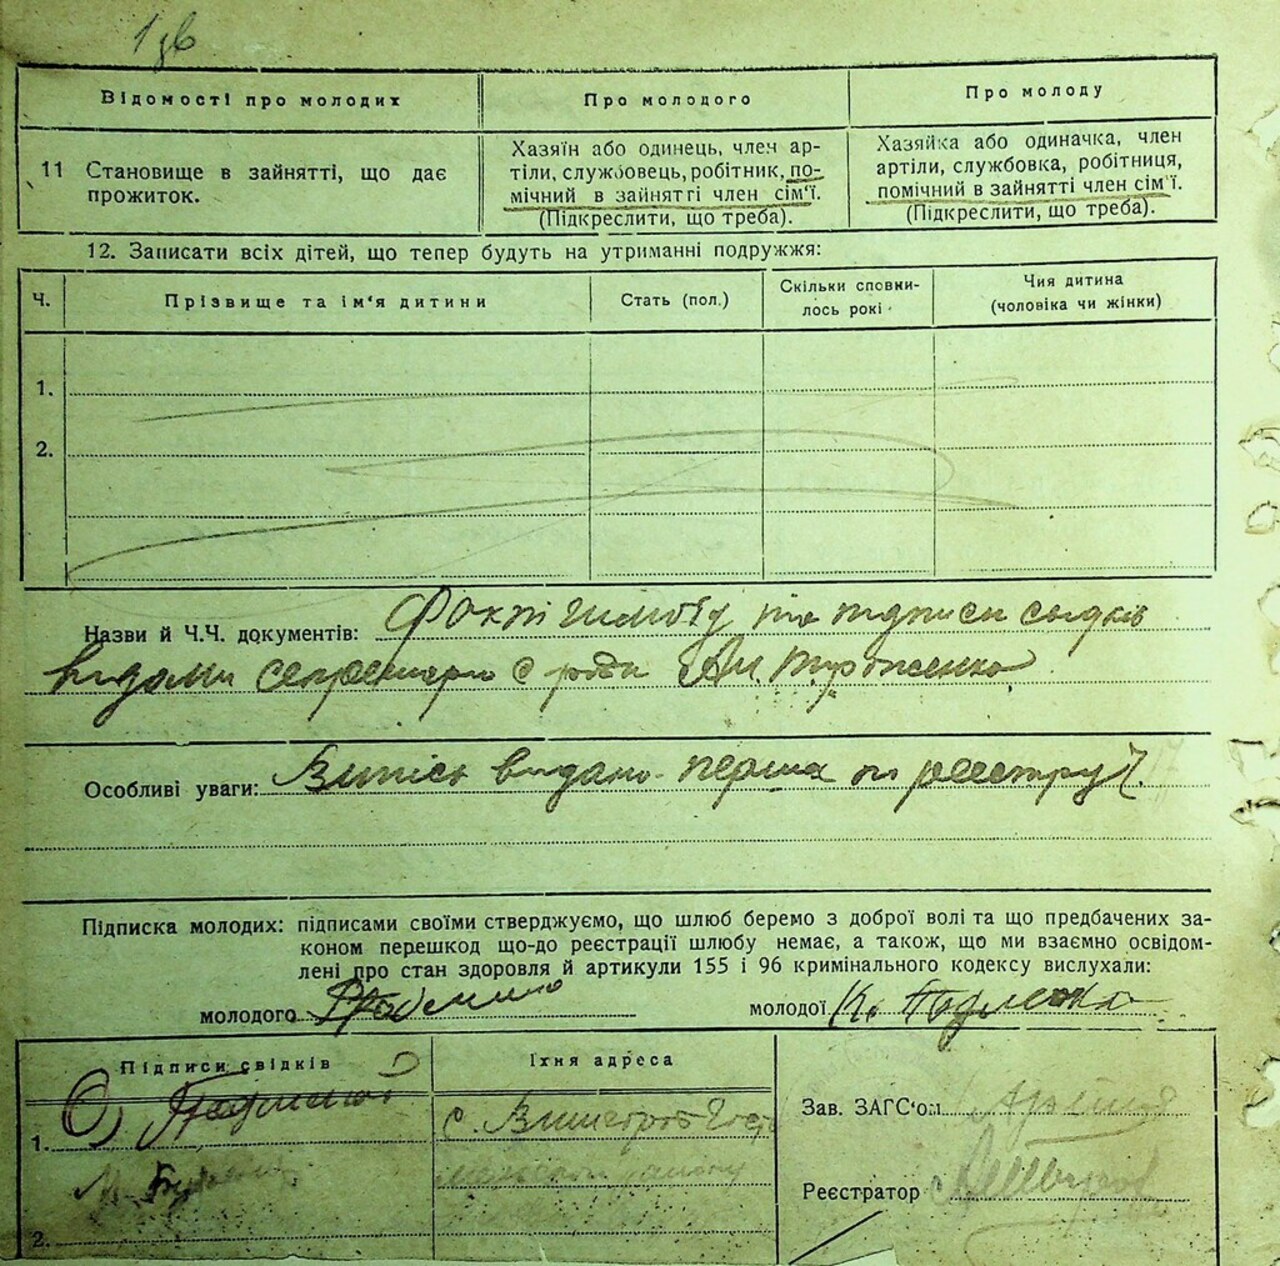 1 зв
Відомості про молодих
Про молодого
Про молоду
11 Становище в зайнятті, що дає
прожиток.
Хазяїн або одинець, член ар-
тіли, службовець, робітник, по-
мічний в зайнятті член сім'ї.
(Підкреслити, що треба).
Хазяйка або одиначка, член
артіли, службовка, робітниця,
помічний в зайнятті член сім'ї.
(Підкреслити, що треба).
12. Записати всіх дітей, що тепер будуть на утриманні подружжя:
Ч.
Прізвище та ім'я дитини
Стать (пол.)
Скільки сповни-
лось рокі
Чия дитина
(чоловіка чи жінки)
1.
2.
Назви й Ч.Ч. документів: та підписи свідків
видани секретарем с ради
Особливі уваги: Випись видано перша по реєстру
Підписка молодих: підписами своїми стверджуємо, що шлюб беремо з доброї волі та що предбачених за-
коном перешкод що-до реєстрації шлюбу немає, а також, що ми взаємно освідом-
лені про стан здоровля й артикули 155 і 96 кримінального кодексу вислухали:
молодого
молодої К.
Підписи свідків
Їхня адреса
1.
с.
2.
Зав. ЗАГС'ом
Реєстратор